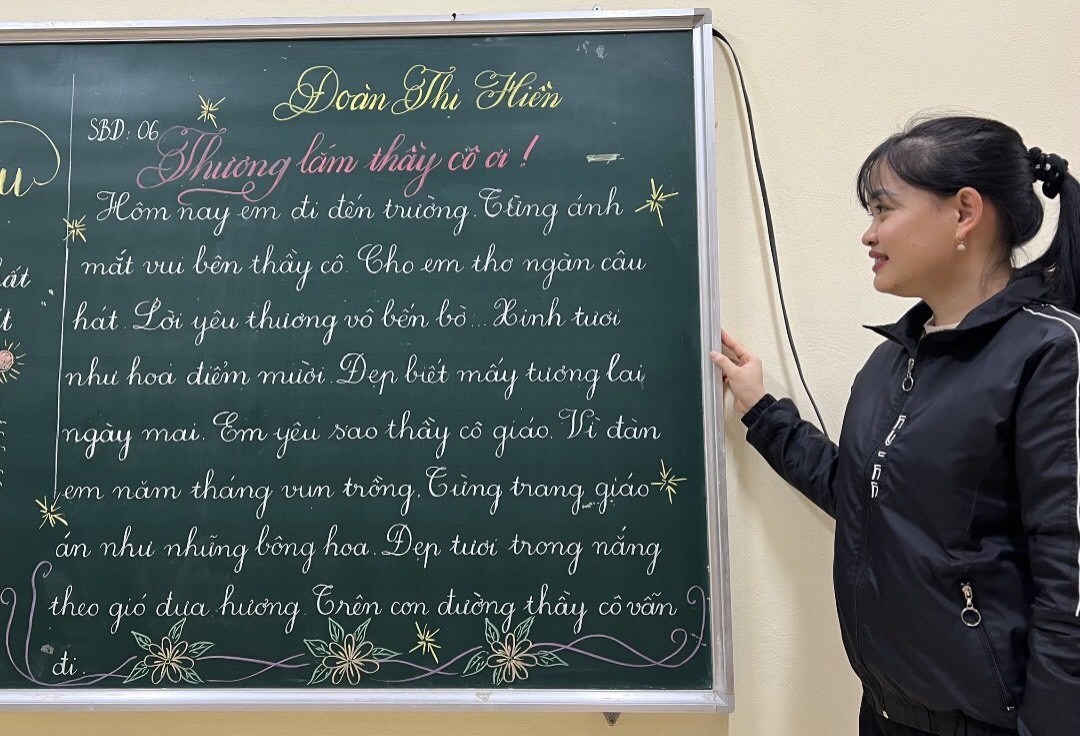 Đoàn Thị Hiền
SBD: 06
Thương lắm thầy cô ơi !
Hôm nay em đi đến trường. Từng ánh
mắt vui bên thầy cô. Cho em thơ ngàn câu
hát. Lời yêu thương vô bến bờ... Xinh tươi
như hoa điểm mười. Đẹp biết mấy tương lai
ngày mai. Em yêu sao thầy cô giáo. Vì đàn
em năm tháng vun trồng. Từng trang giáo
án như những bông hoa. Đẹp tươi trong nắng
theo gió đưa hương. Trên con đường thầy cô vẫn
đi.